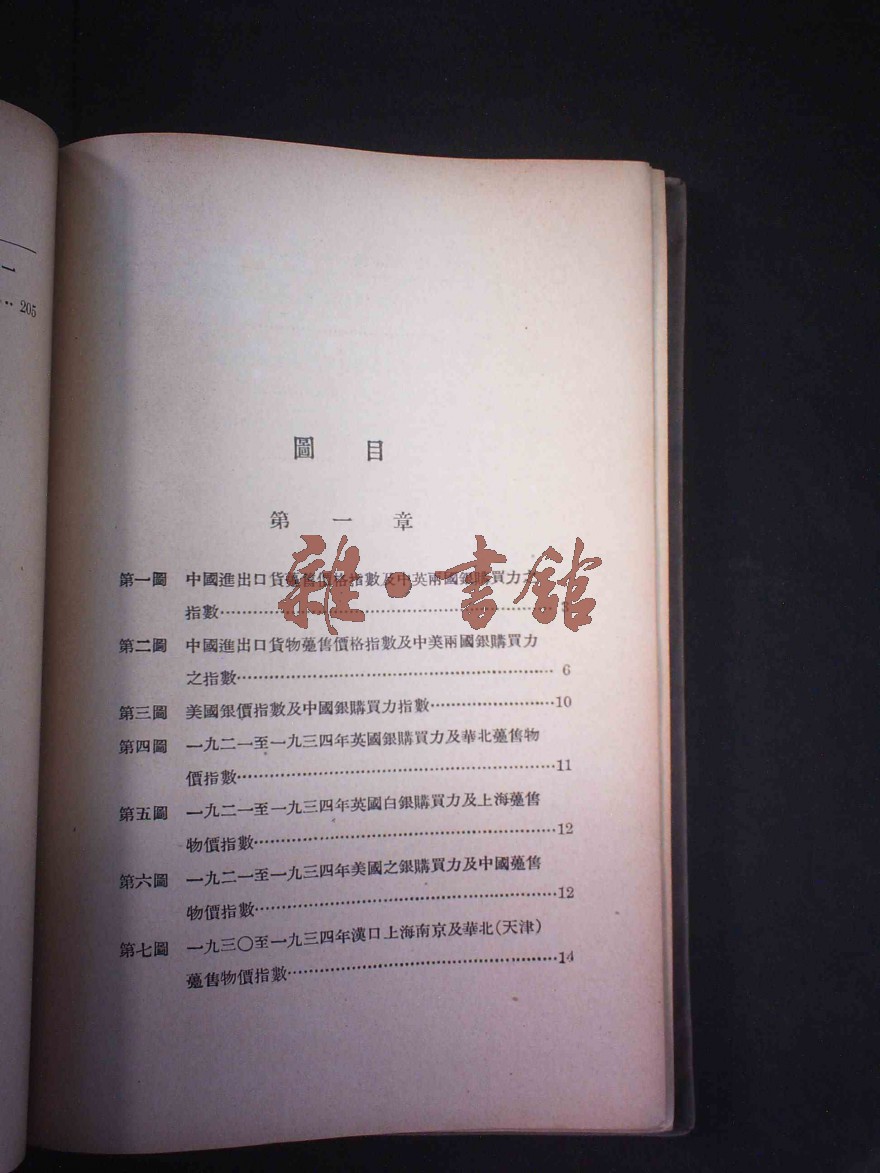 一
205
圖 目
第 一 章
第一圖 中國進出口貨躉售價格指數及中英兩國銀購買力之
指數 3
第二圖 中國進出口貨物躉售價格指數及中美兩國銀購買力
之指數 6
第三圖 美國銀價指數及中國銀購買力指數 10
第四圖 一九二一至一九三四年英國銀購買力及華北躉售物
價指數 11
第五圖 一九二一至一九三四年英國白銀購買力及上海躉售
物價指數 12
第六圖 一九二一至一九三四年美國之銀購買力及中國躉售
物價指數 12
第七圖 一九三〇至一九三四年漢口上海南京及華北(天津)
躉售物價指數 14
雜·書館